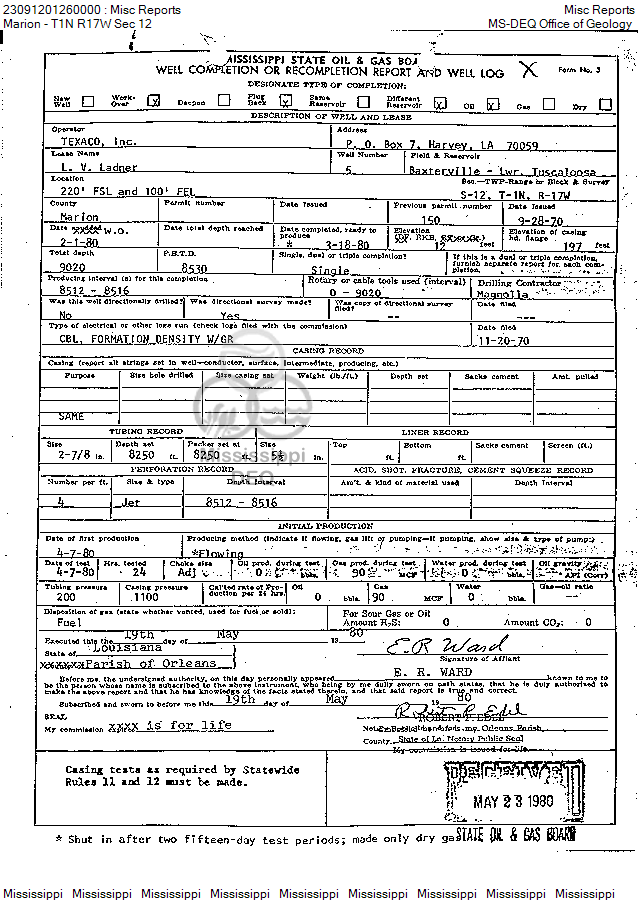 23091201260000 : Misc Reports Misc Reports
Marion - T1N R17W Sec 12 MS-DEQ Office of Geology
MISSISSIPPI STATE OIL & GAS BOA
WELL COMPLETION OR RECOMPLETION REPORT AND WELL LOG X Form No. 3
DESIGNATE TYPE OF COMPLETION:
New Well Work-Over X Deepen Plug Back X Same Reservoir Different Reservoir X Oil X Gas Dry
DESCRIPTION OF WELL AND LEASE
Operator Address
TEXACO, Inc. P. O. Box 7, Harvey, LA 70059
Lease Name Well Number Field & Reservoir
L. V. Ladner 5 Baxterville - Lwr. Tuscaloosa
Location Sec.-TWP-Range or Block & Survey
220' FSL and 100' FEL S-12, T-1N, R-17W
County Permit number Date Issued Previous permit number Date Issued
Marion 150 9-28-70
Date W.O. Date total depth reached Date completed, ready to produce Elevation (DF, RKB, Elevation of casing hd. flange
2-1-80 * 3-18-80 12 feet 197 feet
Total depth P.B.T.D. Single, dual or triple completion? If this is a dual or triple completion, furnish separate report for each completion.
9020 8530 Single
Producing interval (s) for this completion Rotary or cable tools used (interval) Drilling Contractor
8512 - 8516 0 - 9020 Magnolia
Was this well directionally drilled? Was directional survey made? Was copy of directional survey filed? Date filed
No Yes -- ---
Type of electrical or other logs run (check logs filed with the commission) Date filed
CBL, FORMATION DENSITY W/GR 11-20-70
CASING RECORD
Casing (report all strings set in well—conductor, surface, intermediate, producing, etc.)
Purpose Size hole drilled Size casing set Weight (lb./ft.) Depth set Sacks cement Amt. pulled
SAME
TUBING RECORD LINER RECORD
Size Depth set Packer set at Size Top Bottom Sacks cement Screen (ft.)
2-7/8 in. 8250 ft. 8250 ft. 5½ in. ft. ft.
PERFORATION RECORD ACID, SHOT, FRACTURE, CEMENT SQUEEZE RECORD
Number per ft. Size & type Depth Interval Am't. & kind of material used Depth Interval
4 Jet 8512 - 8516
INITIAL PRODUCTION
Date of first production Producing method (indicate if flowing, gas lift or pumping—if pumping, show size & type of pump:)
4-7-80 *Flowing
Date of test Hrs. tested Choke size Oil prod. during test Gas prod. during test Water prod. during test Oil gravity
4-7-80 24 Adj 0 bbls. 90 MCF 0 bbls. API (Corr)
Tubing pressure Casing pressure Cal'ted rate of Production per 24 hrs. Oil Gas Water Gas—oil ratio
200 1100 0 bbls. 90 MCF 0 bbls.
Disposition of gas (state whether vented, used for fuel or sold): For Sour Gas or Oil
Fuel Amount H2S: 0 Amount CO2: 0
Executed this the 19th day of May 19 80
State of Louisiana E. R. Ward
Parish of Orleans Signature of Affiant
Before me, the undersigned authority, on this day personally appeared E. R. WARD known to me to
be the person whose name is subscribed to the above instrument, who being by me duly sworn on oath states, that he is duly authorized to
make the above report and that he has knowledge of the facts stated therein, and that said report is true and correct.
Subscribed and sworn to before me this 19th day of May 19 80
SEAL
My commission xxxx is for life
County State of La. Notary Public Seal
My commission is issued for life.
Casing tests as required by Statewide
Rules 11 and 12 must be made.
MAY 23 1980
STATE OIL & GAS BOARD
* Shut in after two fifteen-day test periods; made only dry gas
Mississippi
DEQ
Mississippi Mississippi Mississippi Mississippi Mississippi Mississippi Mississippi Mississippi Mississippi